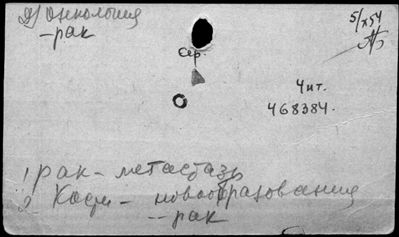 д) Онкология
- рак
5/X 54
сер.
Чит.
468384.
1) рак - метастазы
2 Кости - новообразования
-- рак